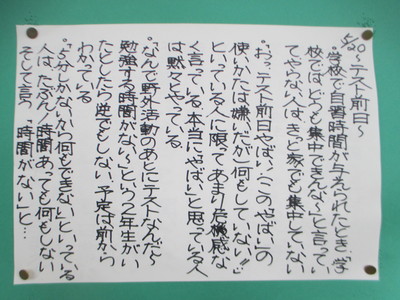 5/20 〜テスト前日〜
"学校で自習時間が与えられたとき、「学
校ではどうも集中できんな〜」と言ってい
てやらない人は、きっと家でも集中していない
"おっ、テスト前日やばい!(この"やばい"の
使いかたは嫌いだが)何もしていない!!」
といっている人に限ってあまり危機感な
く言っている。本当に"やばい"と思っている人
は黙々とやっている
"なんで野外活動のあとにテストなんだ〜
勉強する時間がない〜」という2年生がい
たとしたら もしない。予定は前から
わかっている
"「5分しかないから何もできない」といっている
人は、たぶん1時間あっても何もしない
そして言う「時間がない」と…